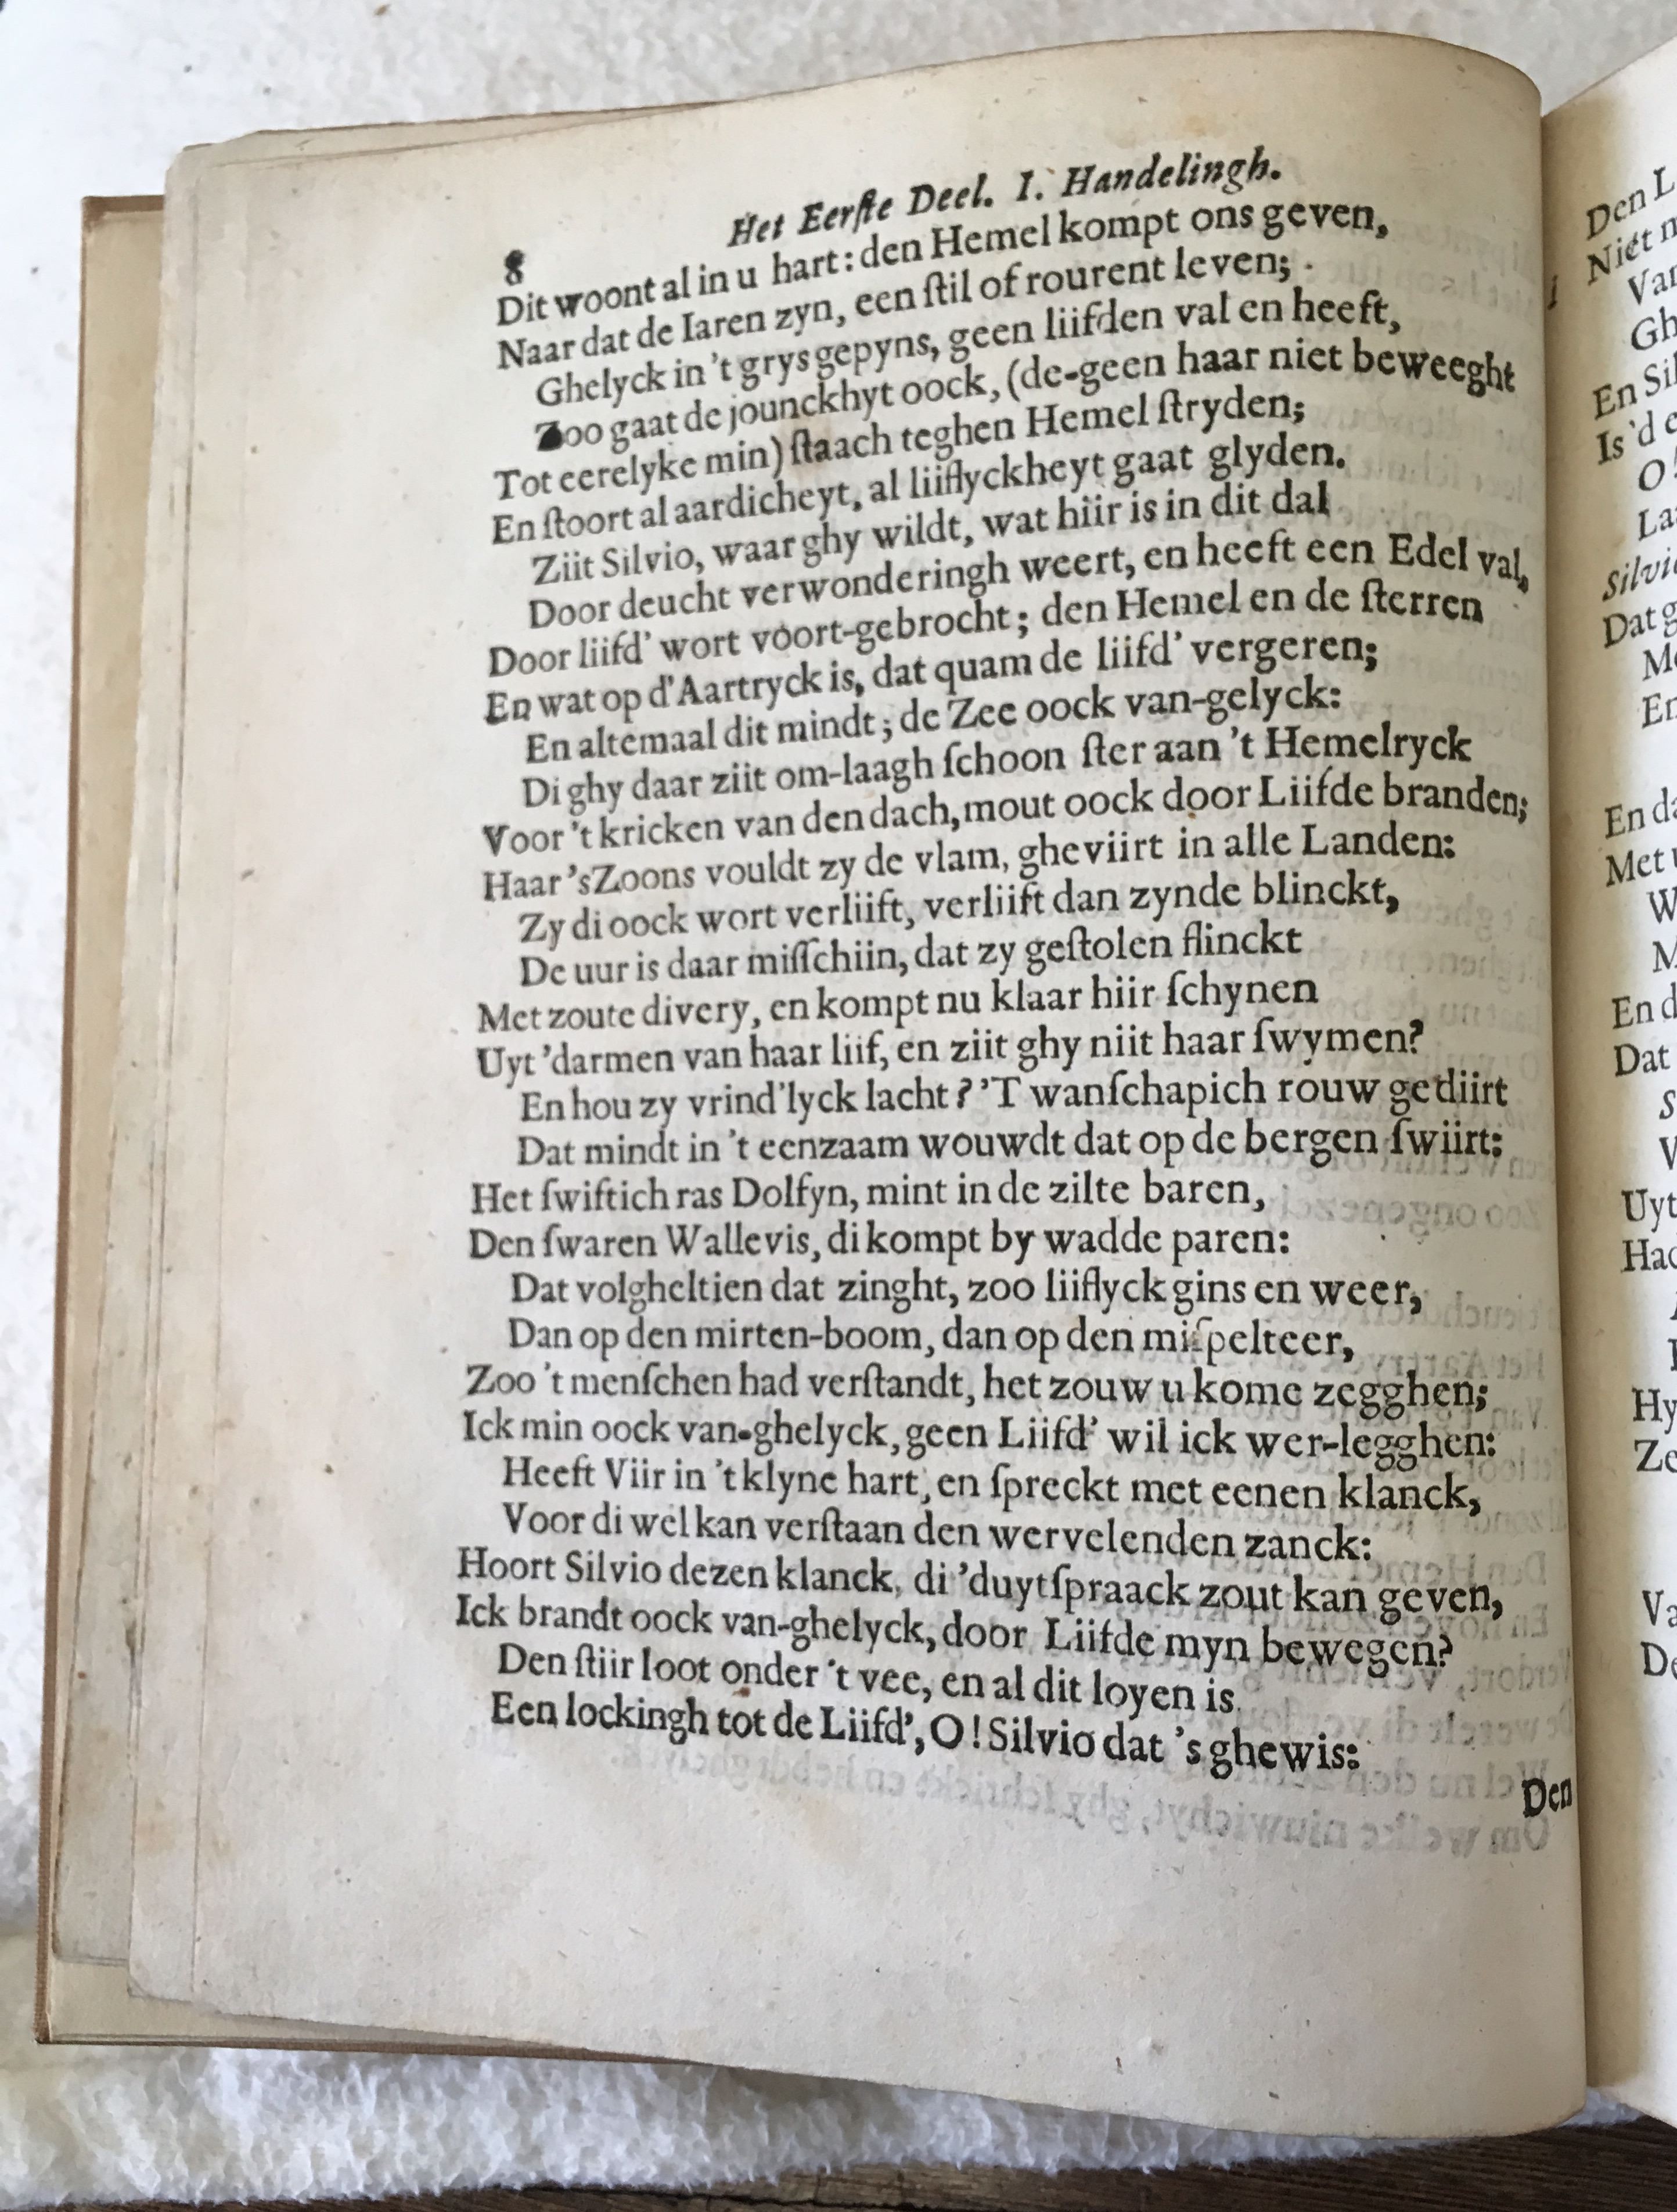 8 Het Eerſte Deel. I. Handelingh.
Dit woont al in u hart: den Hemel kompt ons geven,
Naar dat de Iaren zyn, een ſtil of rourent leven;
Ghelyck in 't grys gepyns, geen liifden val en heeft,
Zoo gaat de jounckhyt oock, (de-geen haar niet beweeght
Tot eerelyke min) ſtaach teghen Hemel ſtryden;
En ſtoort al aardicheyt, al liiflyckheyt gaat glyden.
Ziit Silvio, waar ghy wildt, wat hiir is in dit dal
Door deucht verwonderingh weert, en heeft een Edel val,
Door liifd' wort voort-gebrocht; den Hemel en de ſterren
En wat op d'Aartryck is, dat quam de liifd' vergeren;
En altemaal dit mindt; de Zee oock van-gelyck:
Di ghy daar ziit om-laagh ſchoon ſter aan 't Hemelryck
Voor 't kricken van den dach, mout oock door Liifde branden;
Haar 'sZoons vouldt zy de vlam, gheviirt in alle Landen:
Zy di oock wort verliift, verliift dan zynde blinckt,
De uur is daar miſſchiin, dat zy geſtolen flinckt
Met zoute divery, en kompt nu klaar hiir ſchynen
Uyt 'darmen van haar liif, en ziit ghy niit haar ſwymen?
En hou zy vrind'lyck lacht? 'T wanſchapich rouw gediirt
Dat mindt in 't eenzaam wouwdt dat op de bergen ſwiirt:
Het ſwiftich ras Dolfyn, mint in de zilte baren,
Den ſwaren Wallevis, di kompt by wadde paren:
Dat volgheltien dat zinght, zoo liiflyck gins en weer,
Dan op den mirten-boom, dan op den miſpelteer,
Zoo 't menſchen had verſtandt, het zouw u kome zegghen;
Ick min oock van-ghelyck, geen Liifd' wil ick wer-legghen:
Heeft Viir in 't klyne hart, en ſpreckt met eenen klanck,
Voor di wel kan verſtaan den wervelenden zanck:
Hoort Silvio dezen klanck, di 'duytſpraack zout kan geven,
Ick brandt oock van-ghelyck, door Liifde myn bewegen?
Den ſtiir loot onder 't vee, en al dit loyen is
Een lockingh tot de Liifd', O! Silvio dat 's ghewis:
Den
Den L
Niet
Var
Gh
En Sil
Is 'd
O!
La
Silvi
Dat
M
En
En da
Met
W
M
En d
Dat
S
V
Uyt
Had
Hy
Ze
Va
De